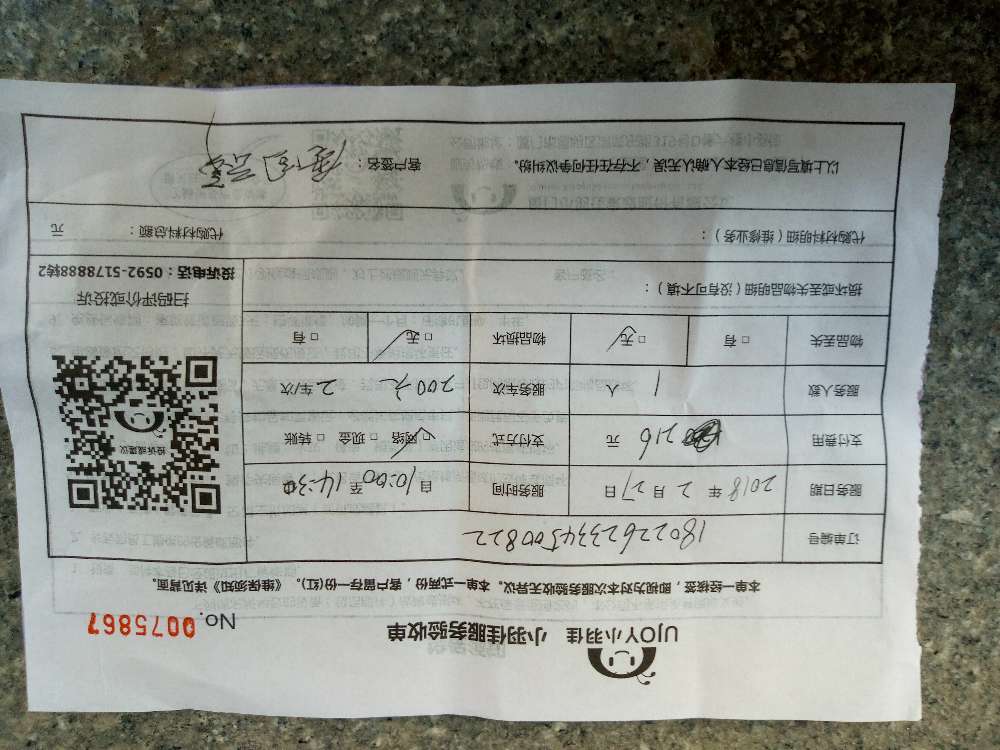 UJOY小羽佳 小羽佳服务验收单
No. 0075867
本单一经核签，即视为对本次服务验收无异议。本单一式两份，客户留存一份(红)。《维保须知》详见背面。
订单编号 1802262334500822
服务日期 2018 年 2 月 27 日 服务时间 自 10:00 至 14:30
支付费用 216 元 支付方式 □ 网络 □ 现金 □ 转账
服务人数 1 人 服务车次 200元 2 车/次
物品丢失 □ 有 □ 无 物品损坏 □ 有 □ 无
损坏或丢失物品明细（没有可不填）：
扫码评价或投诉
投诉电话：0592-5178888转2
投诉或建议
代购材料明细（维修业务）： 代购材料总额： 元
以上填写信息已经本人确认无误，不存在任何争议纠纷。 客户签名：